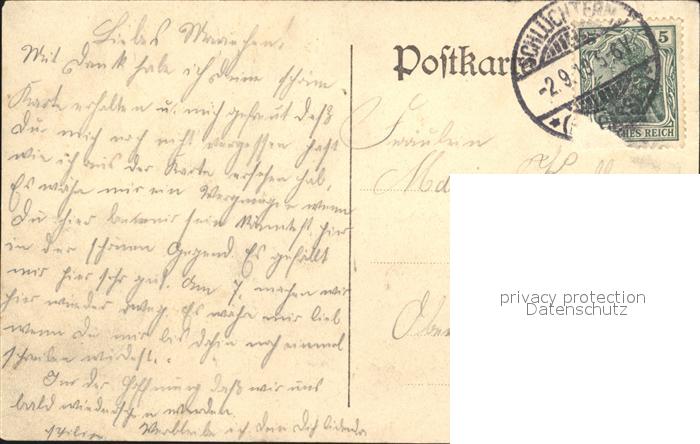 Liebes Mariechen,
Mit Dank habe ich deine schöne
Karte erhalten u. mich gefreut daß
Du mich noch nicht vergessen hast
wie ich aus der Karte ersehen hab,
Es wäre mir ein Vergnügen wenn
Du hier bei mir sein könntest, hier
in der schönen Gegend. Es gefällt
mir hier sehr gut. Am 7. machen wir
hier wieder weg. Es wäre mir lieb
wenn Du mir bis dahin noch einmal
schreiben würdest.
In der Hoffnung daß wir uns
bald wiedersehen werden.
Verbleibe ich Dein Dich liebender
Postkar
SCHLÜCHTERN
-2.9.
5
CHES REICH
Fräulein
Ober
privacy protection
Datenschutz